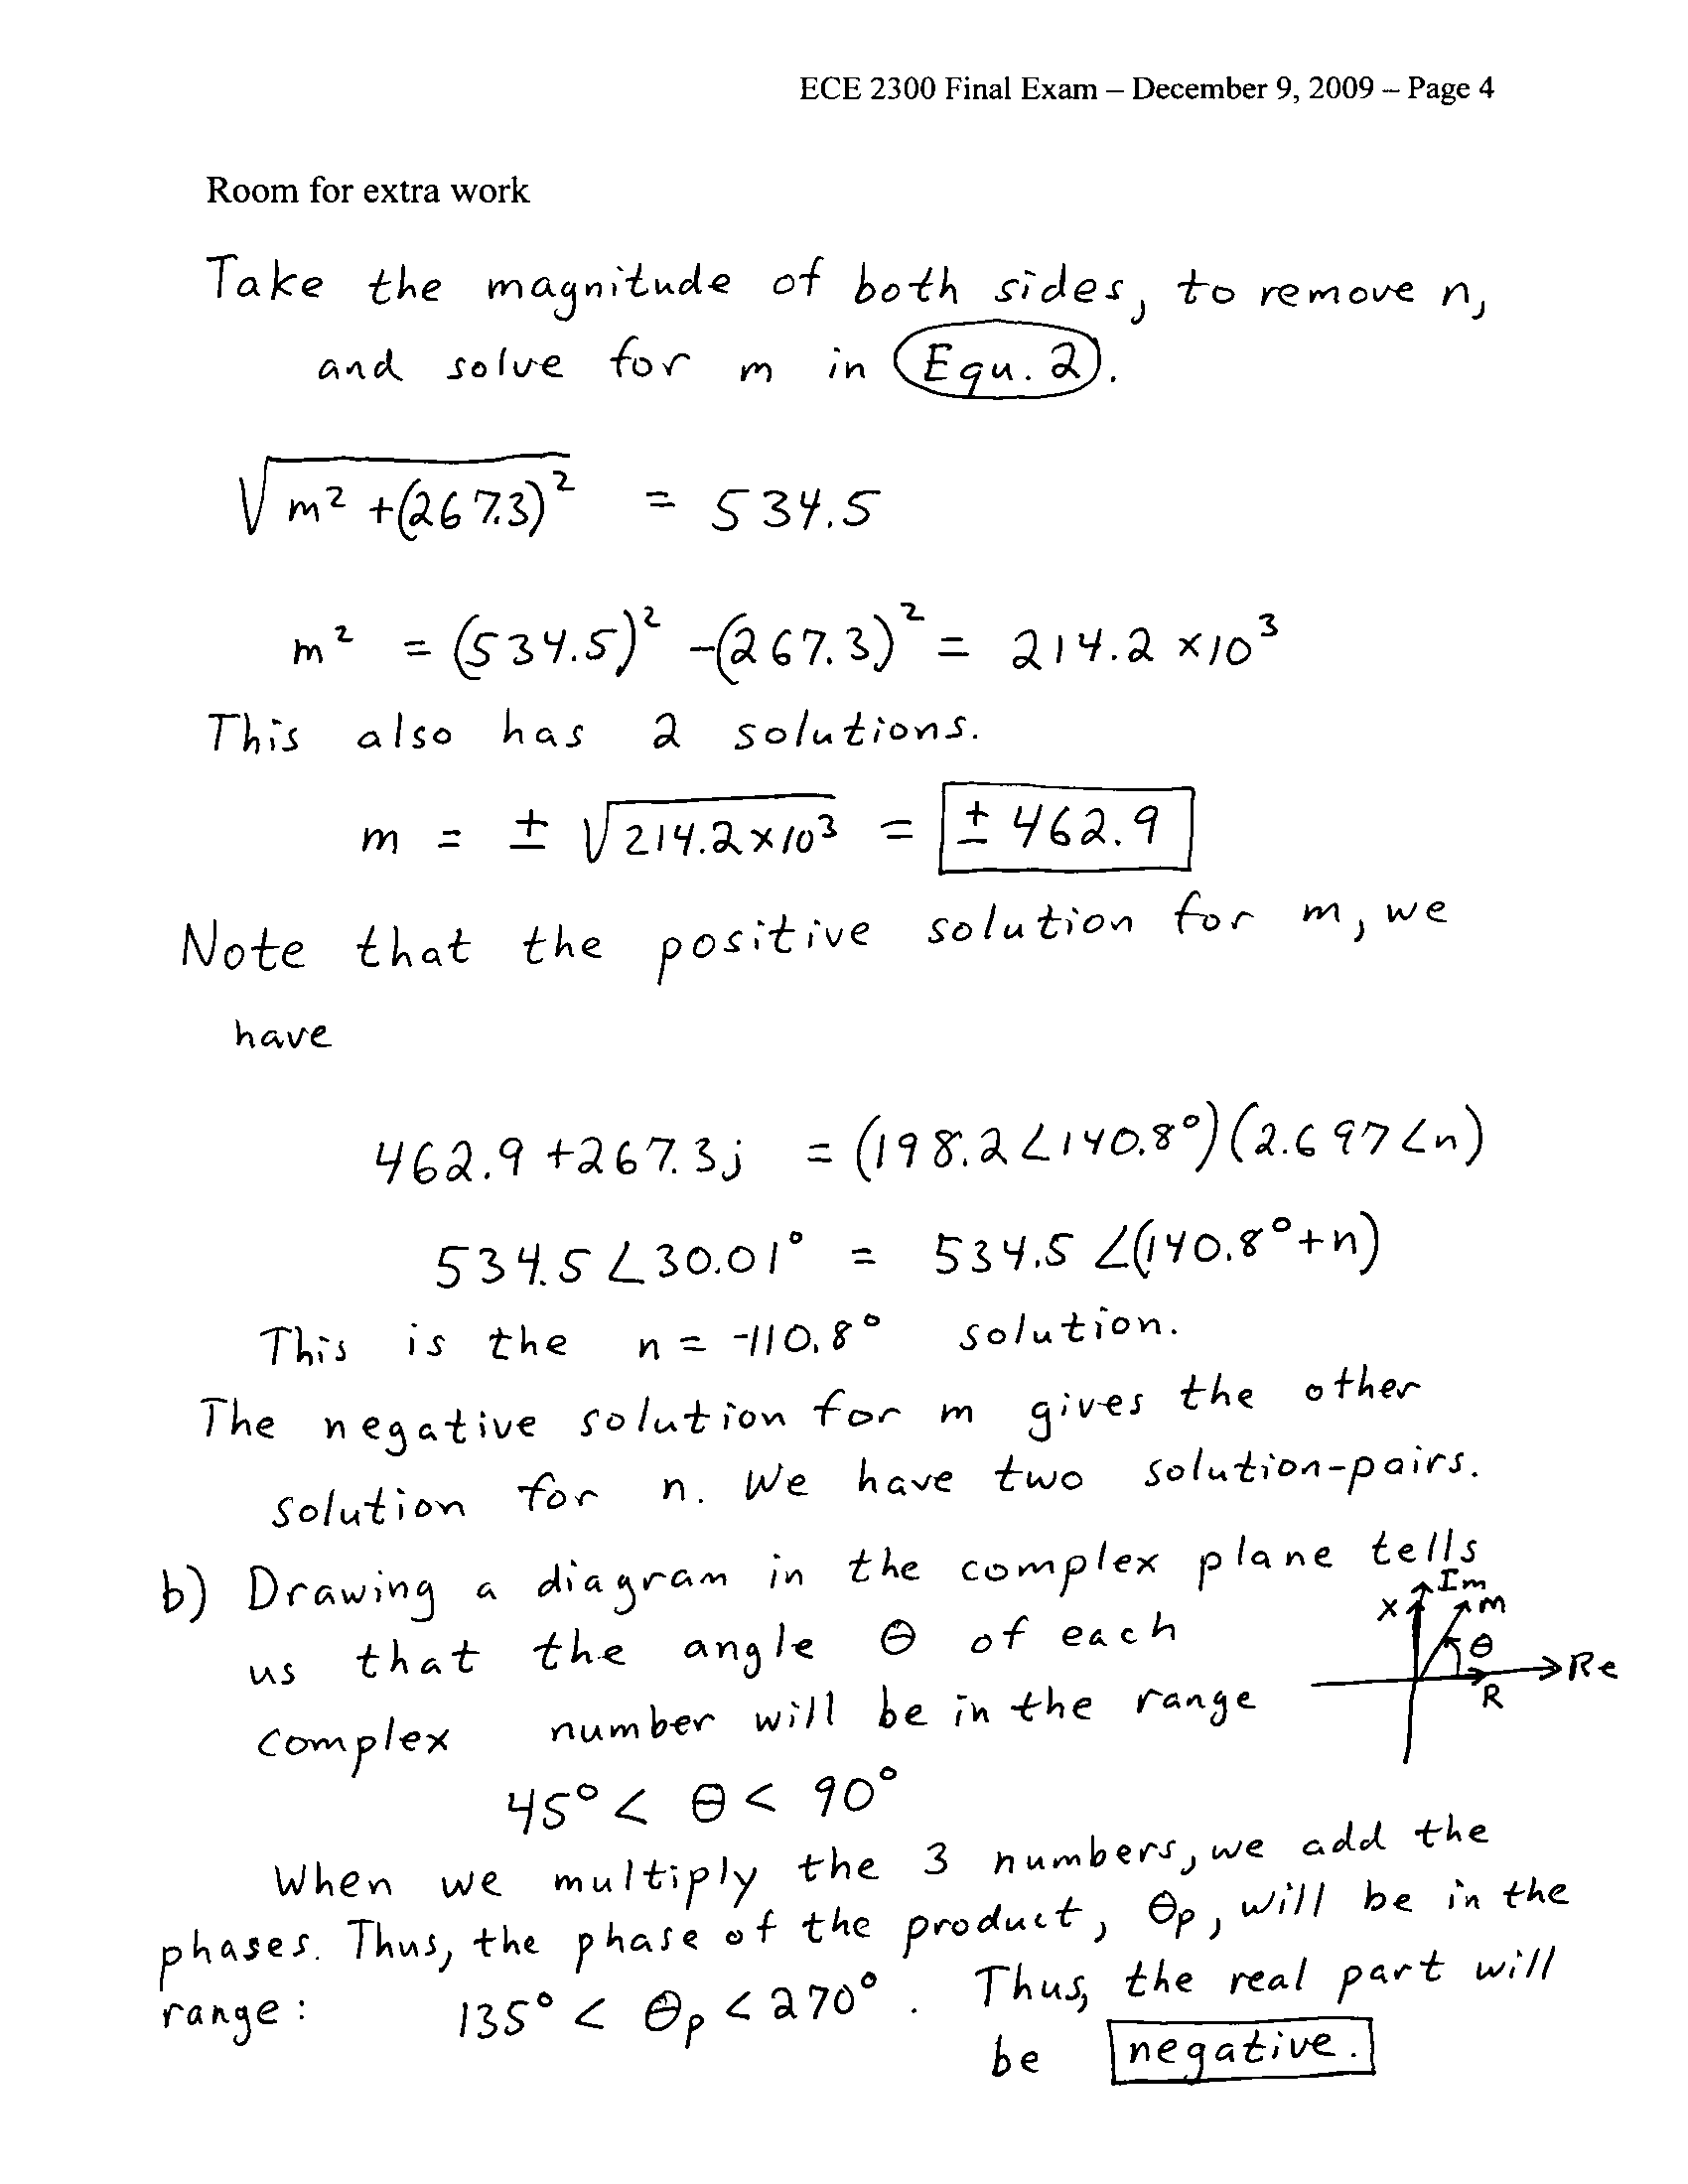 ECE 2300 Final Exam – December 9, 2009 – Page 4
Room for extra work
Take the magnitude of both sides, to remove n,
and solve for m in Equ. 2.
√(m² + (267.3)²) = 534.5
m² = (534.5)² - (267.3)² = 214.2 × 10³
This also has 2 solutions.
m = ± √(214.2 × 10³) = ± 462.9
Note that the positive solution for m, we
have
462.9 + 267.3j = (198.2∠140.8°)(2.697∠n)
534.5∠30.01° = 534.5∠(140.8° + n)
This is the n = -110.8° solution.
The negative solution for m gives the other
solution for n. We have two solution-pairs.
b) Drawing a diagram in the complex plane tells
us that the angle θ of each
complex number will be in the range
Im
X m
θ
Re
R
45° < θ < 90°
When we multiply the 3 numbers, we add the
phases. Thus, the phase of the product, θp, will be in the
range: 135° < θp < 270°. Thus, the real part will
be negative.